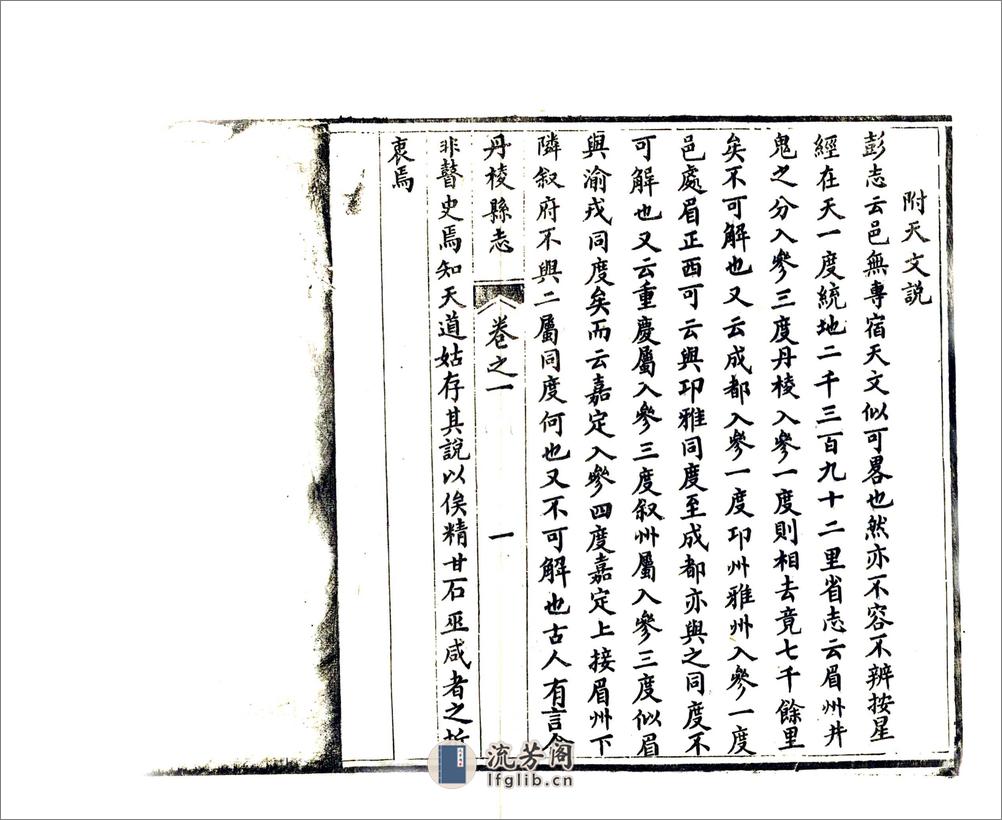 附天文說
彭志云邑無專宿天文似可畧也然亦不容不辨按星
經在天一度統地二千三百九十二里省志云眉州井
鬼之分入參三度丹棱入參一度則相去竟七千餘里
矣不可解也又云成都入參一度卭州雅州入參一度
邑處眉正西可云與卭雅同度至成都亦與之同度不
可解也又云重慶屬入參三度叙州屬入參三度似眉
與渝戎同度矣而云嘉定入參四度嘉定上接眉州下
隣叙府不與二屬同度何也又不可解也古人有言
丹棱縣志 卷之一 一
非瞽史焉知天道姑存其說以俟精甘石巫咸者之折
衷焉
流芳阁
lfglib.cn